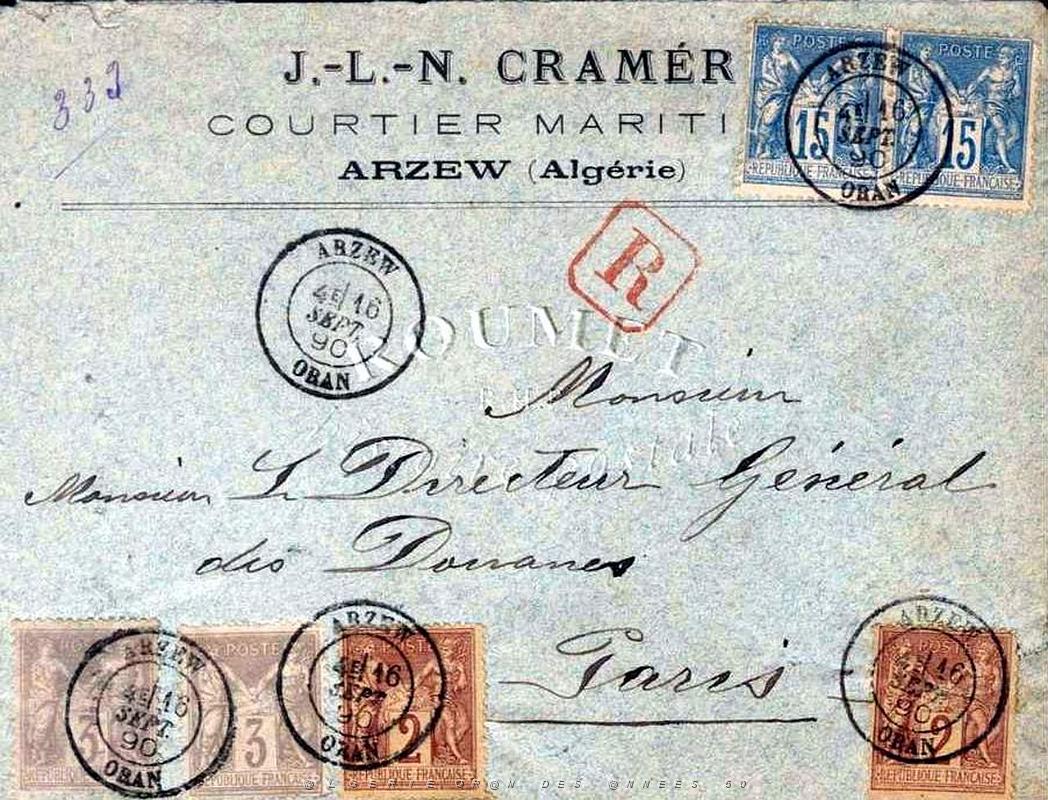 J.-L.-N. CRAMÉR
COURTIER MARITI
ARZEW (Algérie)
332
POSTE
15
REPUBLIQUE FRANÇAISE
POSTE
15
REPUBLIQUE FRANÇAISE
ARZEW
4E/16
SEPT.
90
ORAN
ARZEW
4E/16
SEPT.
90
ORAN
R
ROUMET
Monsieur
Monsieur Le Directeur Général
des Douanes
Paris
ARZEW
4E/16
SEPT.
90
ORAN
3
POSTE
3
REPUBLIQUE FRANÇAISE
ARZEW
4E/16
SEPT
90
ORAN
2
REPUBLIQUE FRANÇAISE
ARZEW
4E/16
SEPT
90
ORAN
2
REPUBLIQUE FRANÇAISE